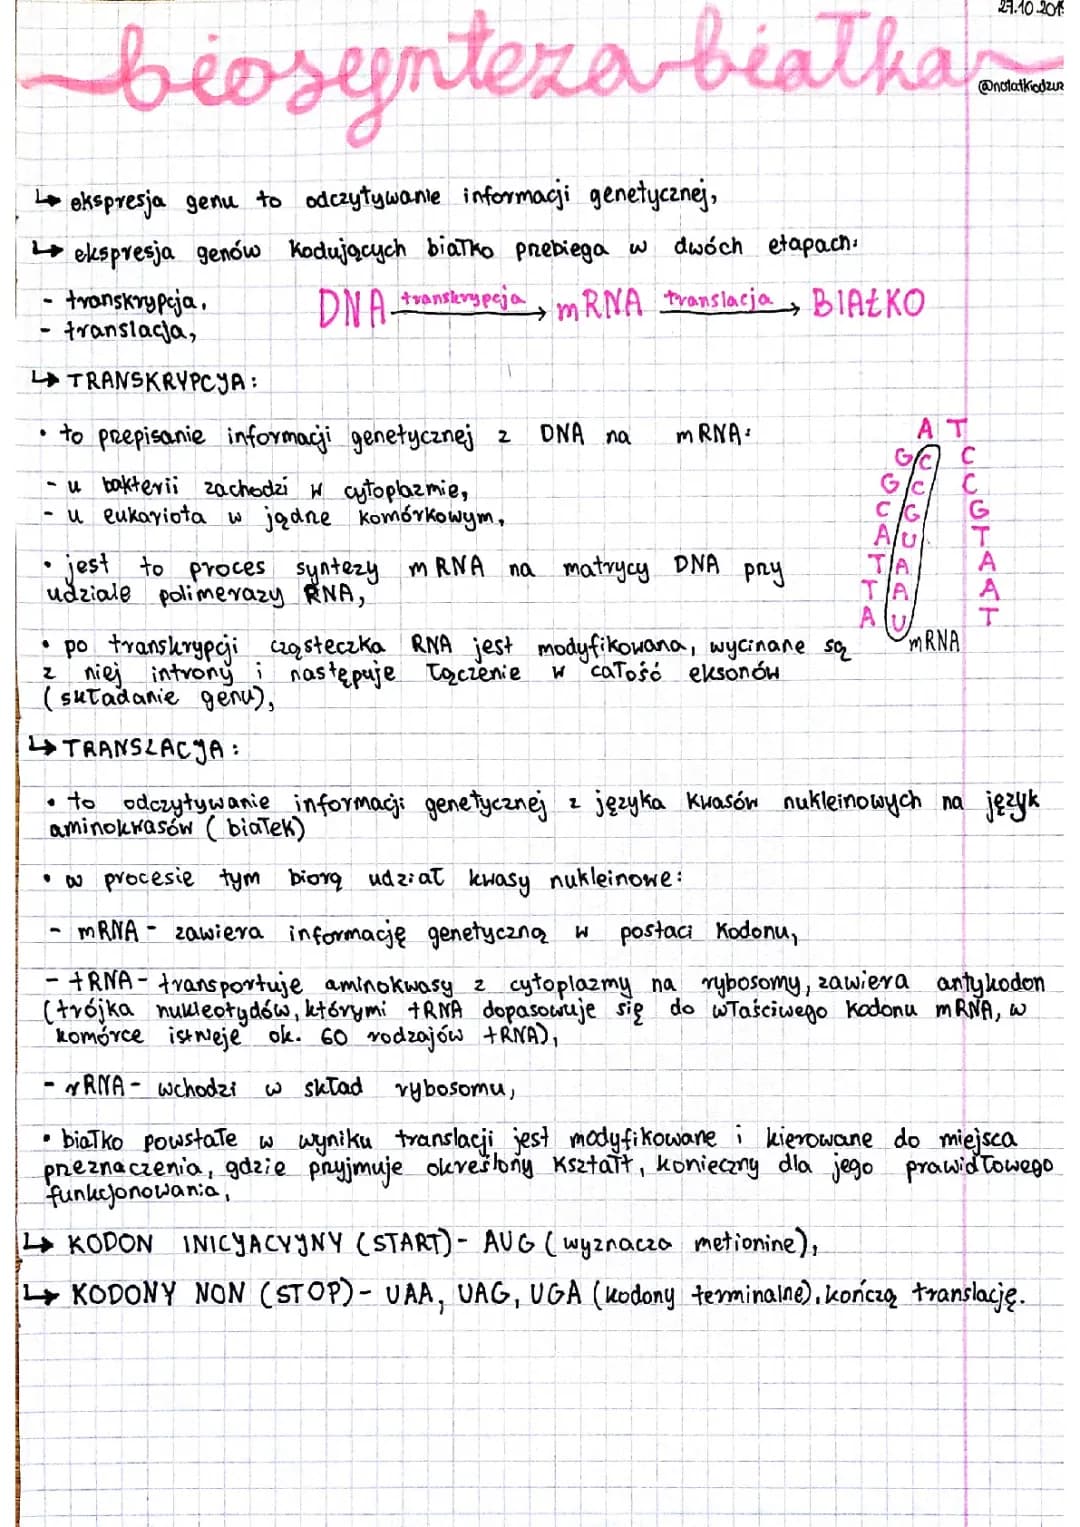 27.10.201
biosynteza białka
@notatkiodzur
↳ ekspresja genu to odczytywanie informacji genetycznej,
↳ ekspresja genów kodujących białko przebiega w dwóch etapach:
- transkrypcja,
- translacja,
DNA transkrypcja → mRNA translacja → BIAŁKO
↳ TRANSKRYPCJA:
• to przepisanie informacji genetycznej z DNA na mRNA:
- u bakterii zachodzi w cytoplazmie,
- u eukariota w jądrze komórkowym,
• jest to proces syntezy mRNA na matrycy DNA przy
udziale polimerazy RNA,
• po transkrypcji cząsteczka RNA jest modyfikowana, wycinane są
z niej introny i następuje łączenie w całość eksonów
(składanie genu),
A T
G C C
G C C
C G G
A U T
T A A
T A A
A U T
mRNA
↳ TRANSLACJA:
• to odczytywanie informacji genetycznej z języka kwasów nukleinowych na język
aminokwasów (białek)
• w procesie tym biorą udział kwasy nukleinowe:
- mRNA - zawiera informację genetyczną w postaci kodonu,
- tRNA - transportuje aminokwasy z cytoplazmy na rybosomy, zawiera antykodon
(trójka nukleotydów, którymi tRNA dopasowuje się do właściwego kodonu mRNA, w
komórce istnieje ok. 60 rodzajów tRNA),
- rRNA - wchodzi w skład rybosomu,
• białko powstałe w wyniku translacji jest modyfikowane i kierowane do miejsca
przeznaczenia, gdzie przyjmuje określony kształt, konieczny dla jego prawidłowego
funkcjonowania,
↳ KODON INICJACYJNY (START) - AUG (wyznacza metionine),
↳ KODONY NON (STOP) - UAA, UAG, UGA (kodony terminalne), kończą translację.